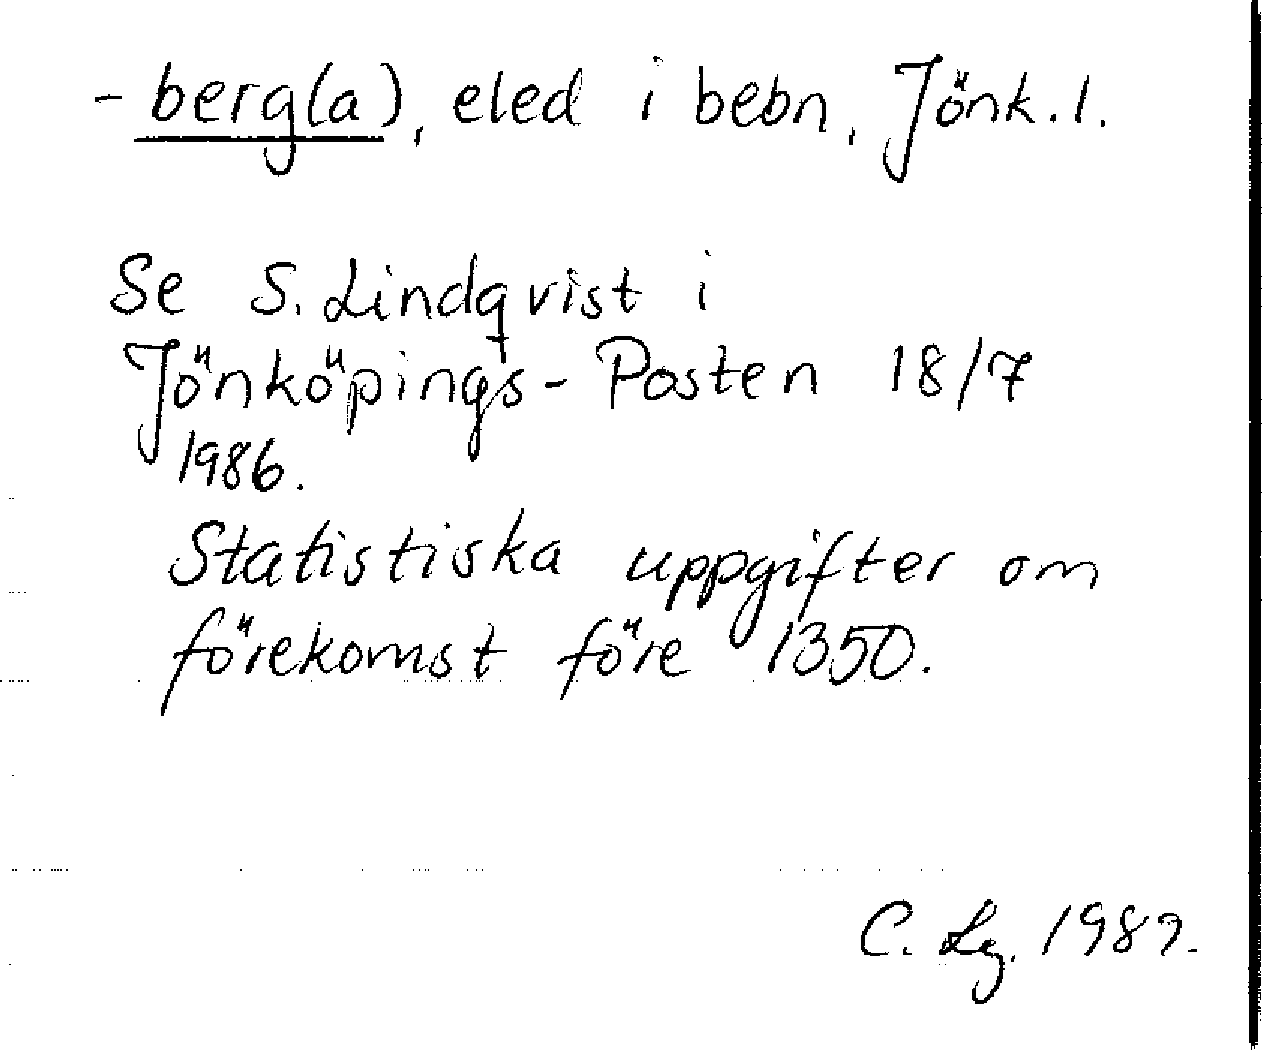 -berg(a), eled i bebn, Jönk.l.
Se S. Lindqvist i
Jönköpings-Posten 18/7
1986.
Statistiska uppgifter om
förekomst före 1350.
C. Lg. 1987.